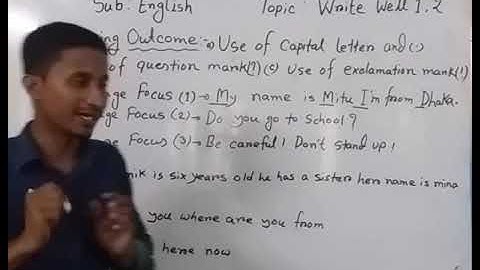 Sub: English Topic: Write Well 1.2
ing Outcome:→ Use of Capital letter and (.)
of question mank(?) (c) Use of exclamation mank(!)
ge Focus (1)→ My name is Mitu I'm from Dhaka.
ge Focus (2)→ Do you go to School?
ge Focus (3)→ Be careful! Don't stand up!
nik is six years old he has a sisten hen name is mina
you where are you from
hene now